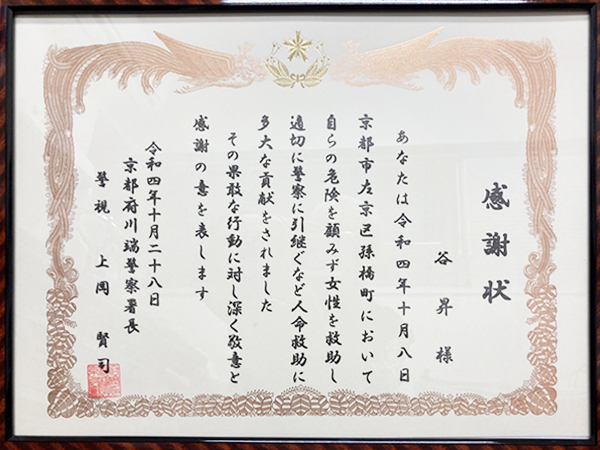 感謝状
谷昇様
あなたは令和四年十月八日
京都市左京区孫橋町において
自らの危険を顧みず女性を救助し
適切に警察に引継ぐなど人命救助に
多大な貢献をされました
その果敢な行動に対し深く敬意と
感謝の意を表します
令和四年十月二十八日
京都府川端警察署長
警視 上岡 賢司